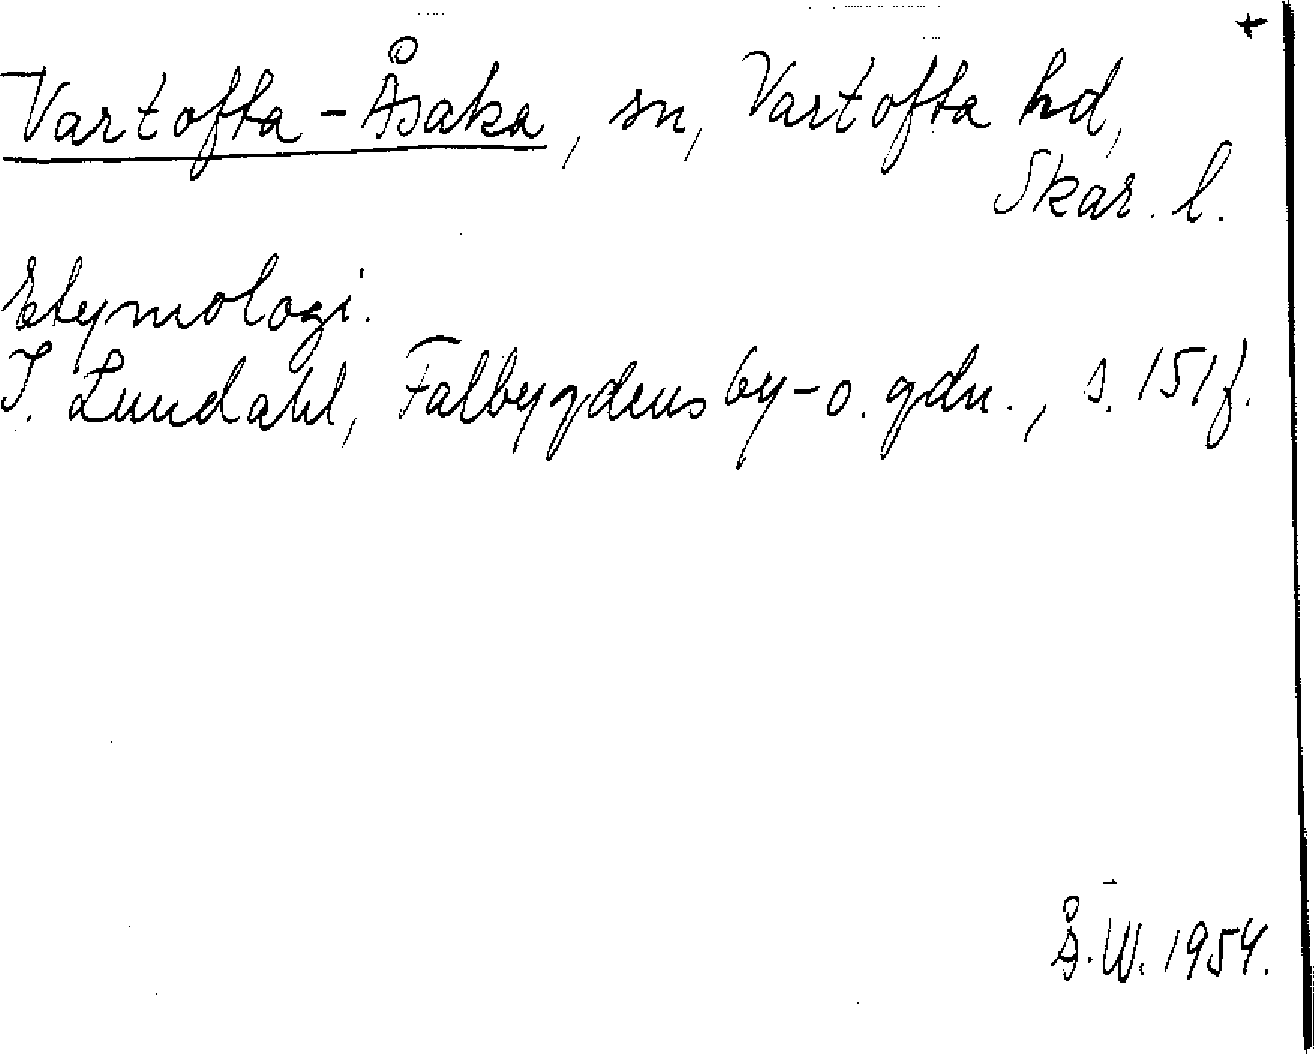 +
Vartofta-Åsaka, sn, Vartofta hd,
Skar. l.
Etymologi.
I. Lundahl, Falbygdens by- o. gdn., s. 151f.
Å.W. 1954.